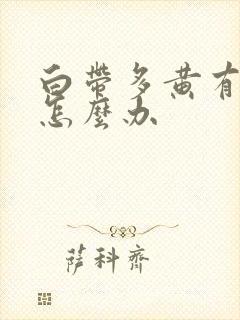 白帶多黃有
怎麼办
萨科齊